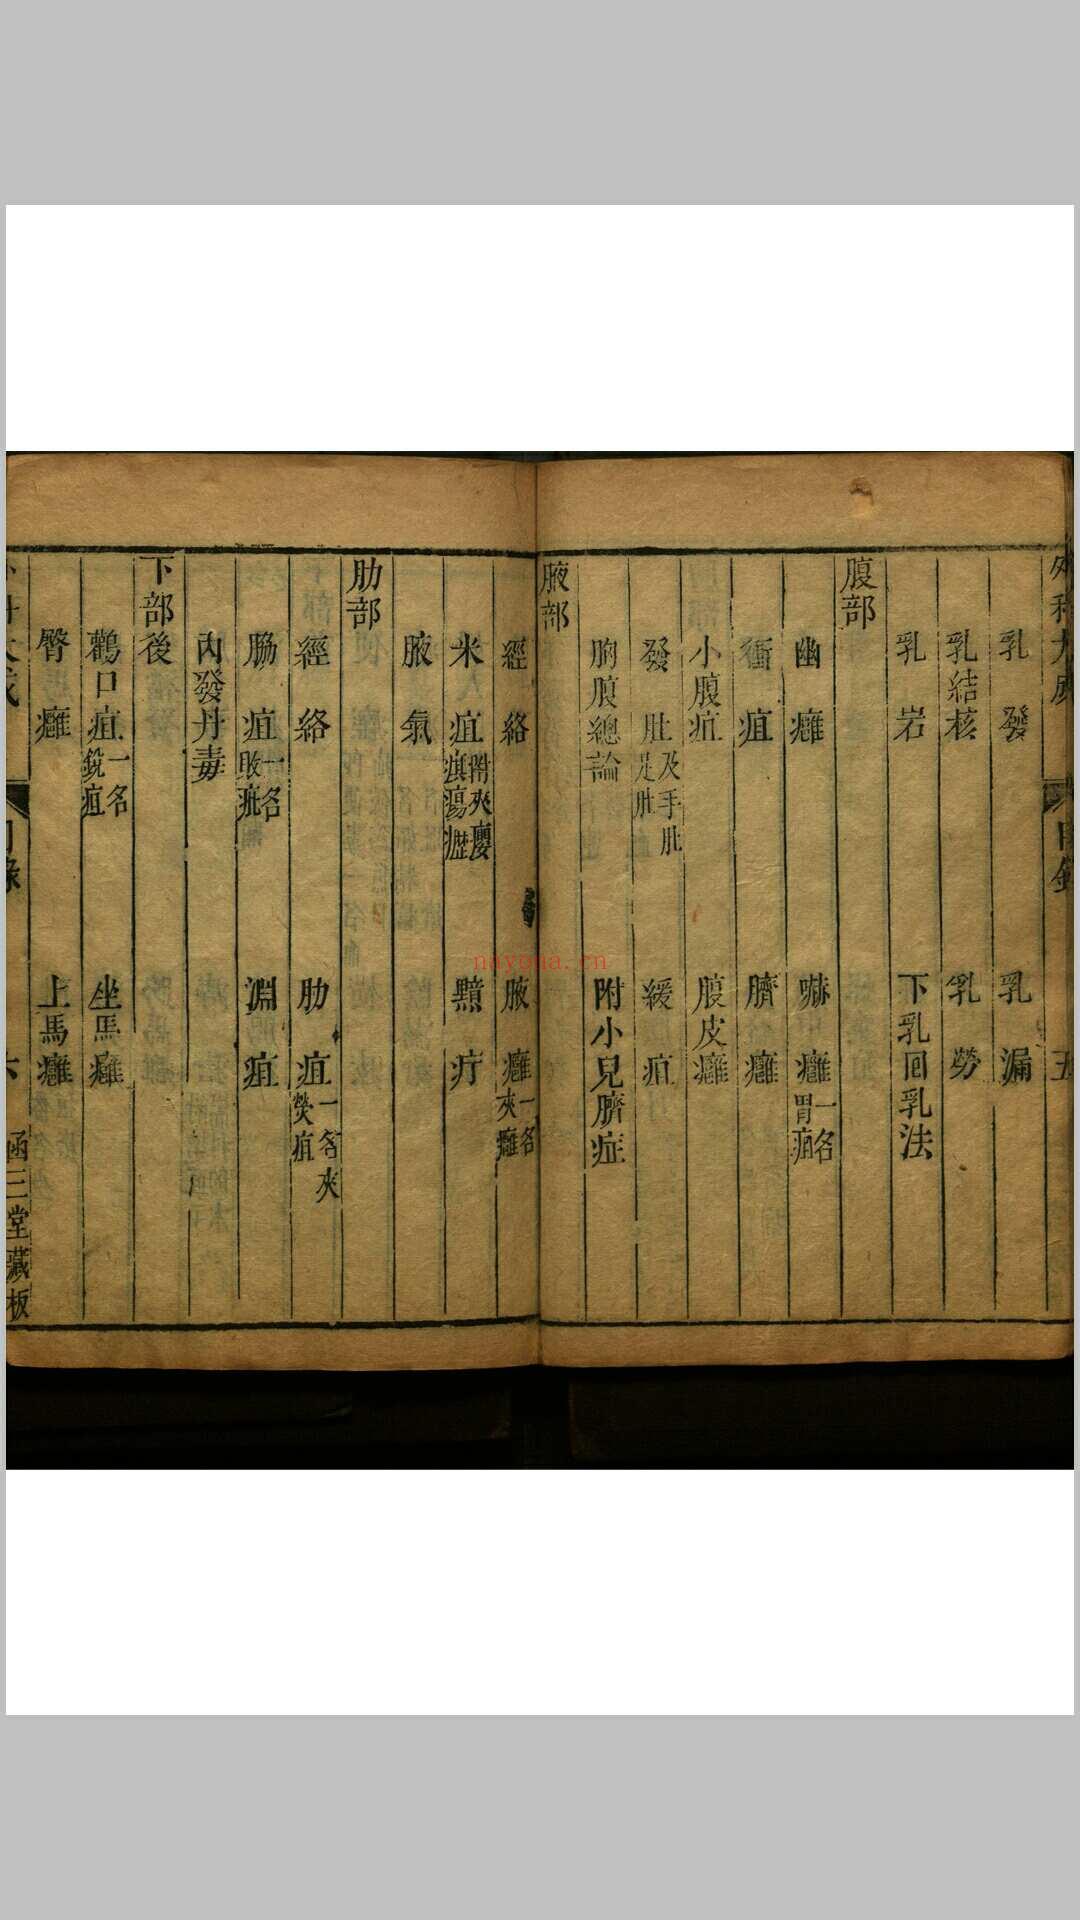 目錄 五
乳發 乳漏
乳結核 乳勞
乳岩 下乳回乳法
腹部
幽癰 嚇癰一名胃癰
衝疽 臍癰
小腹疽 腹皮癰
發肚及手肚足肚 緩疽
胸腹總論 附小兒臍症
腋部
經絡 腋癰一名夾癰
米疽附夾癭瘍瘰 黯疔
腋氣
肋部
經絡 肋疽一名夾熒疽
脇疽一名敗疵 淵疽
內發丹毒
下部後
鸛口疽一名銳疽 坐馬癰
臀癰 上馬癰
外科大成 目錄 六 函三堂藏板
nayona.cn